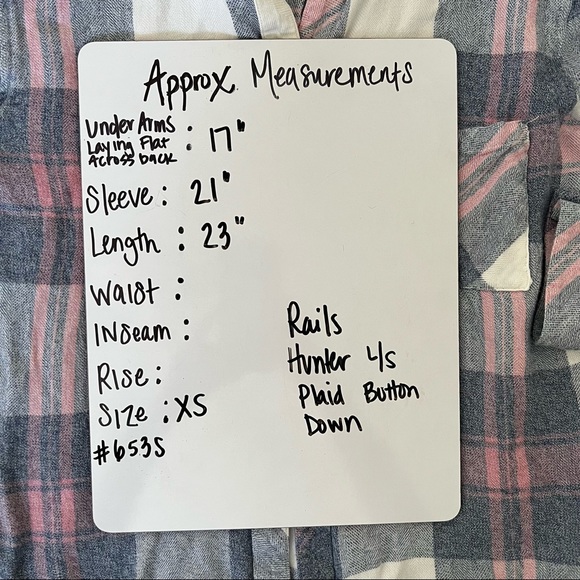 Approx Measurements
Under Arms
Laying Flat
Across back : 17"
Sleeve : 21"
Length : 23"
Waist :
Inseam :
Rise :
Size : XS
#653S
Rails
Hunter L/s
Plaid Button
Down